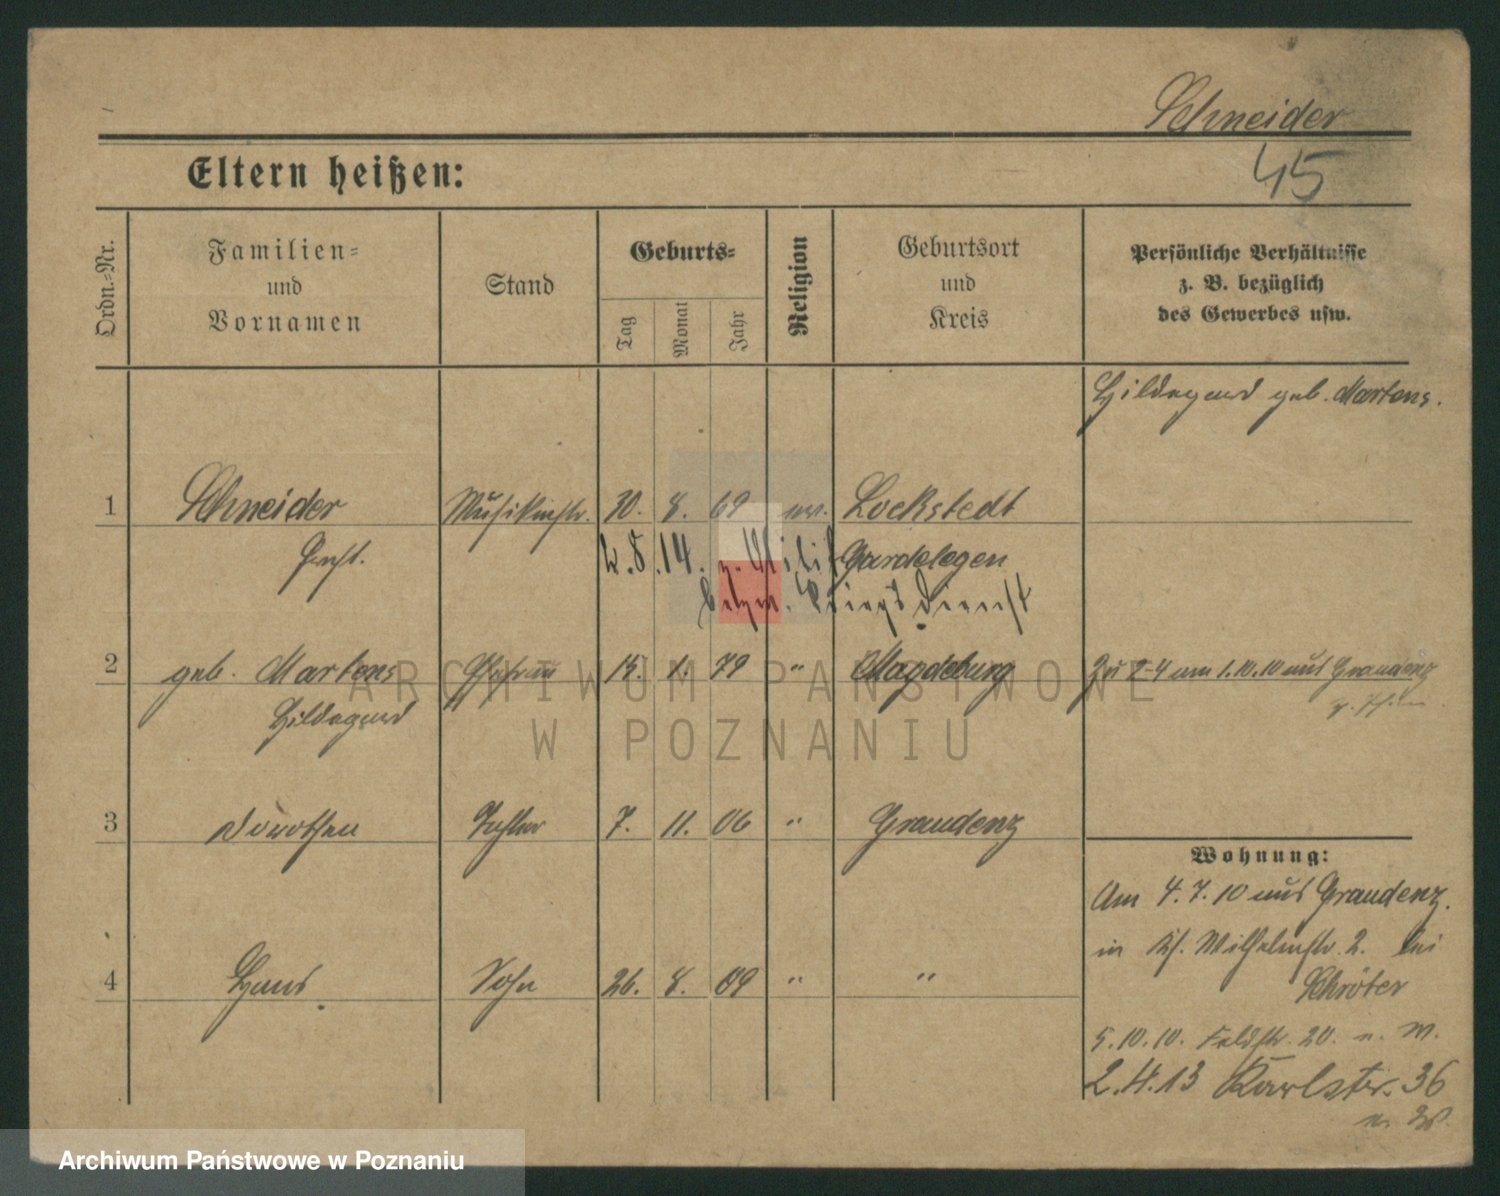 Schneider
45
Eltern heißen:
Ordn.-Nr.
Familien-
und
Vornamen
Stand
Geburts-
Tag
Monat
Jahr
Religion
Geburtsort
und
Kreis
Persönliche Verhältnisse
z. B. bezüglich
des Gewerbes usw.
Hildegard geb. Martens.
1 Schneider 30. 8. 69 ev. Lockstedt
Gardelegen
Kriegsdienst
2 geb. Martens Ehefrau 15. 1. 79 " Magdeburg
Hildegard
zu 2-4 am 1.10.10 aus Graudenz
3 Dorothea Tochter 7. 11. 06 " Graudenz
Wohnung:
Am 4.7.10 aus Graudenz.
in Wilhelmstr. 2. bei
Schröter
4 Hans Sohn 26. 8. 09 " "
5.10.10. Feldstr. 20. n. W.
2.4.13 Karlstr. 36
n. W.
ARCHIWUM PAŃSTWOWE
W POZNANIU
Archiwum Państwowe w Poznaniu